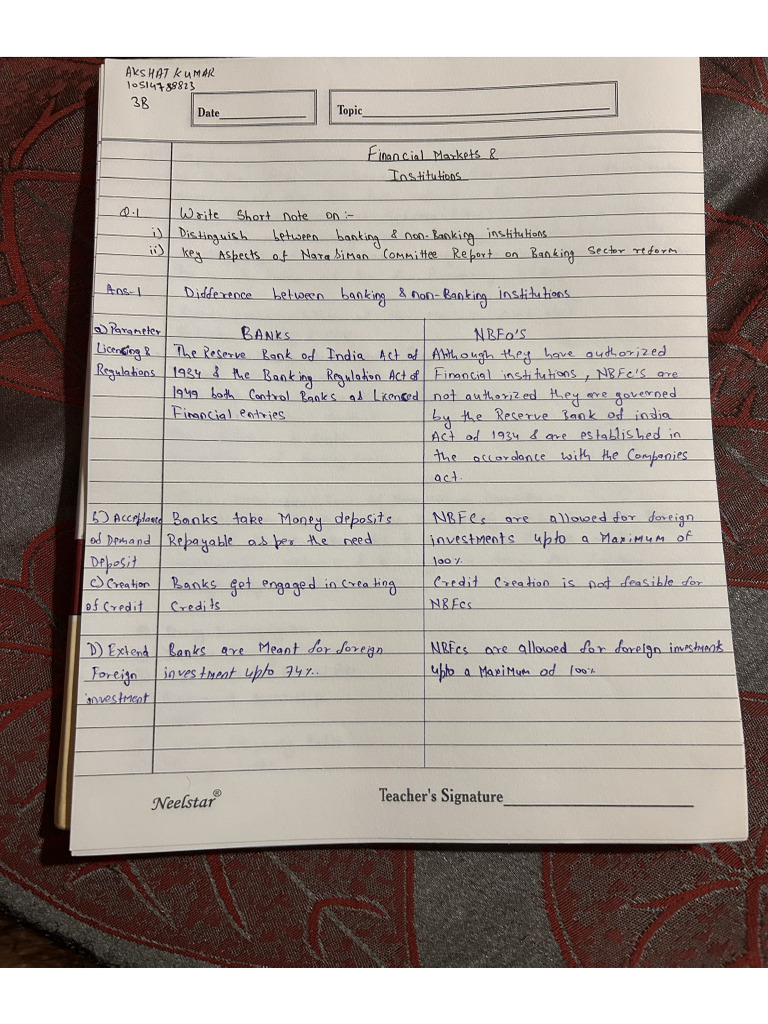 AKSHAT KUMAR
10514788823
3B
Date
Topic
Financial Markets &
Institutions
Q.1 Write Short note on :-
i) Distinguish between banking & non-Banking institutions
ii) Key Aspects of Narasiman Committee Report on Banking Sector reform
Ans-1 Difference between banking & non-Banking institutions
a) Parameter BANKS NBFO'S
Licensing & The Reserve Bank of India Act of Although they have authorized
Regulations 1934 & the Banking Regulation Act of Financial institutions, NBFC's are
1949 both Control Banks as Licensed not authorized they are governed
Financial entries by the Reserve Bank of india
Act of 1934 & are established in
the accordance with the Companies
act.
b) Acceptance Banks take Money deposits NBFCs are allowed for foreign
of Demand Repayable as per the need investments upto a Maximum of
Deposit 100%
c) Creation Banks get engaged in creating Credit Creation is not feasible for
of Credit Credits NBFCs
D) Extend Banks are Meant for foreign NBFCs are allowed for foreign investments
Foreign investment upto 74%. upto a Maximum of 100%
investment
Neelstar®
Teacher's Signature